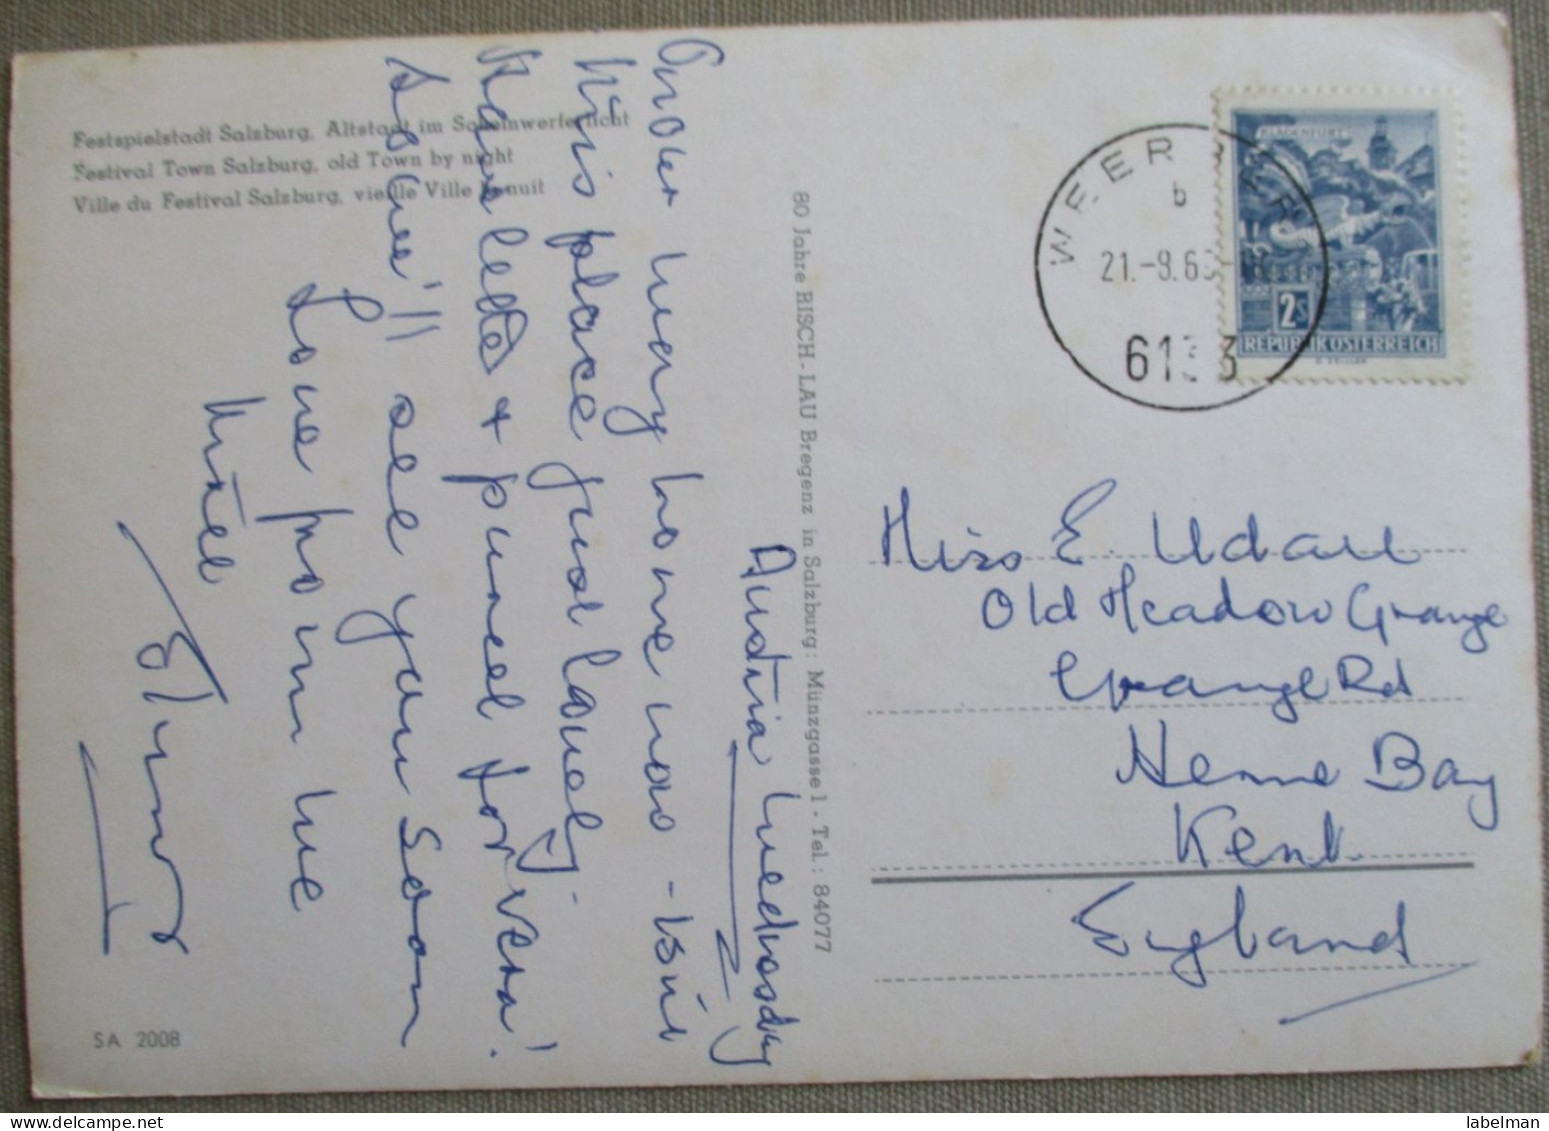 Festspielstadt Salzburg, Altstadt im Scheinwerferlicht
Festival Town Salzburg, old Town by night
Ville du Festival Salzburg, vieille Ville la nuit
Austria Wednesday
On our way home now - Isn't
this place just lovely.
letter & parcel for Vera!
you soon
Love from me
80 Jahre RISCH-LAU Bregenz in Salzburg: Münzgasse 1 · Tel.: 84077
SA 2008
WEER
b
21.-9.6
6133
KLAGENFURT
2S
REPUBLIK ÖSTERREICH
Miss E. Udall
Old Meadow Grange
Grange Rd
Herne Bay
Kent
England
labelman
labelman